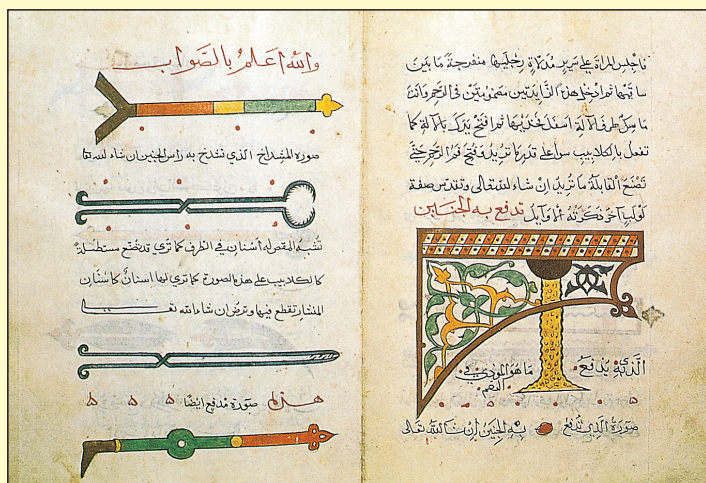 فاجلس المراة على سرير مدلاة رجليها منفرجة ما بين
ساقيها ثم ادخل هذا الزايدتين مضمومتين في الرحم وانت
ماسك طرف الآلة اسفل فخذيها ثم افتح يدك بالآلة كما
تفعل بالكلاليب سواء على قدر ما تريد وفتح فم الرحم حتى
تصنع القابلة ما تريد ان شاء الله تعالى وتقدس صفة
لولب آخر ذكرته الاوايل تدفع به الجنين
الذي يدفع ما هو المودي في
الفم
صورة الذي تدفع به الجنين إن شا الله تعالى
والله أعلم بالصواب
صورة المشداخ الذي تشدخ به راس الجنين ان شاء الله كما
تشبه المقص له أسنان في الطرف كما ترى قد تصنع مستطيلة
كالكلاليب على هذه الصورة كما ترى لها اسنان كاسنان
المنشار تقطع فيها وترض ان شاء الله تعا
هذه صورة مدفع ايضا